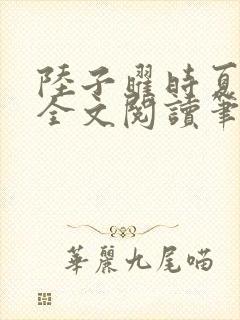 陸子曜時夏
全文閱讀筆
華麗九尾喵